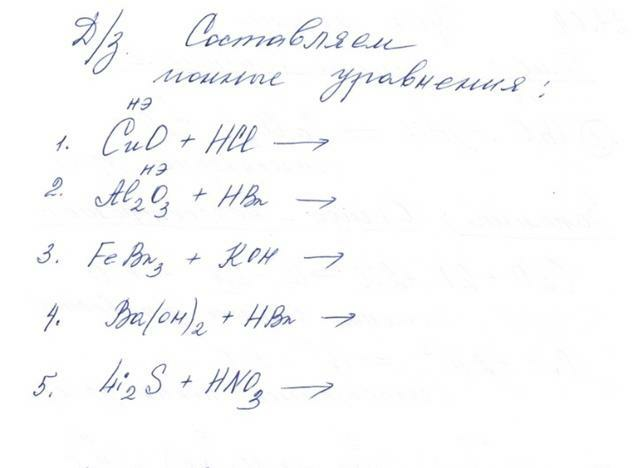 Д/з. Составляем
ионные уравнения:
нэ
1. CuO + HCl →
нэ
2. Al₂O₃ + HBr →
3. FeBr₃ + KOH →
4. Ba(OH)₂ + HBr →
5. Li₂S + HNO₃ →